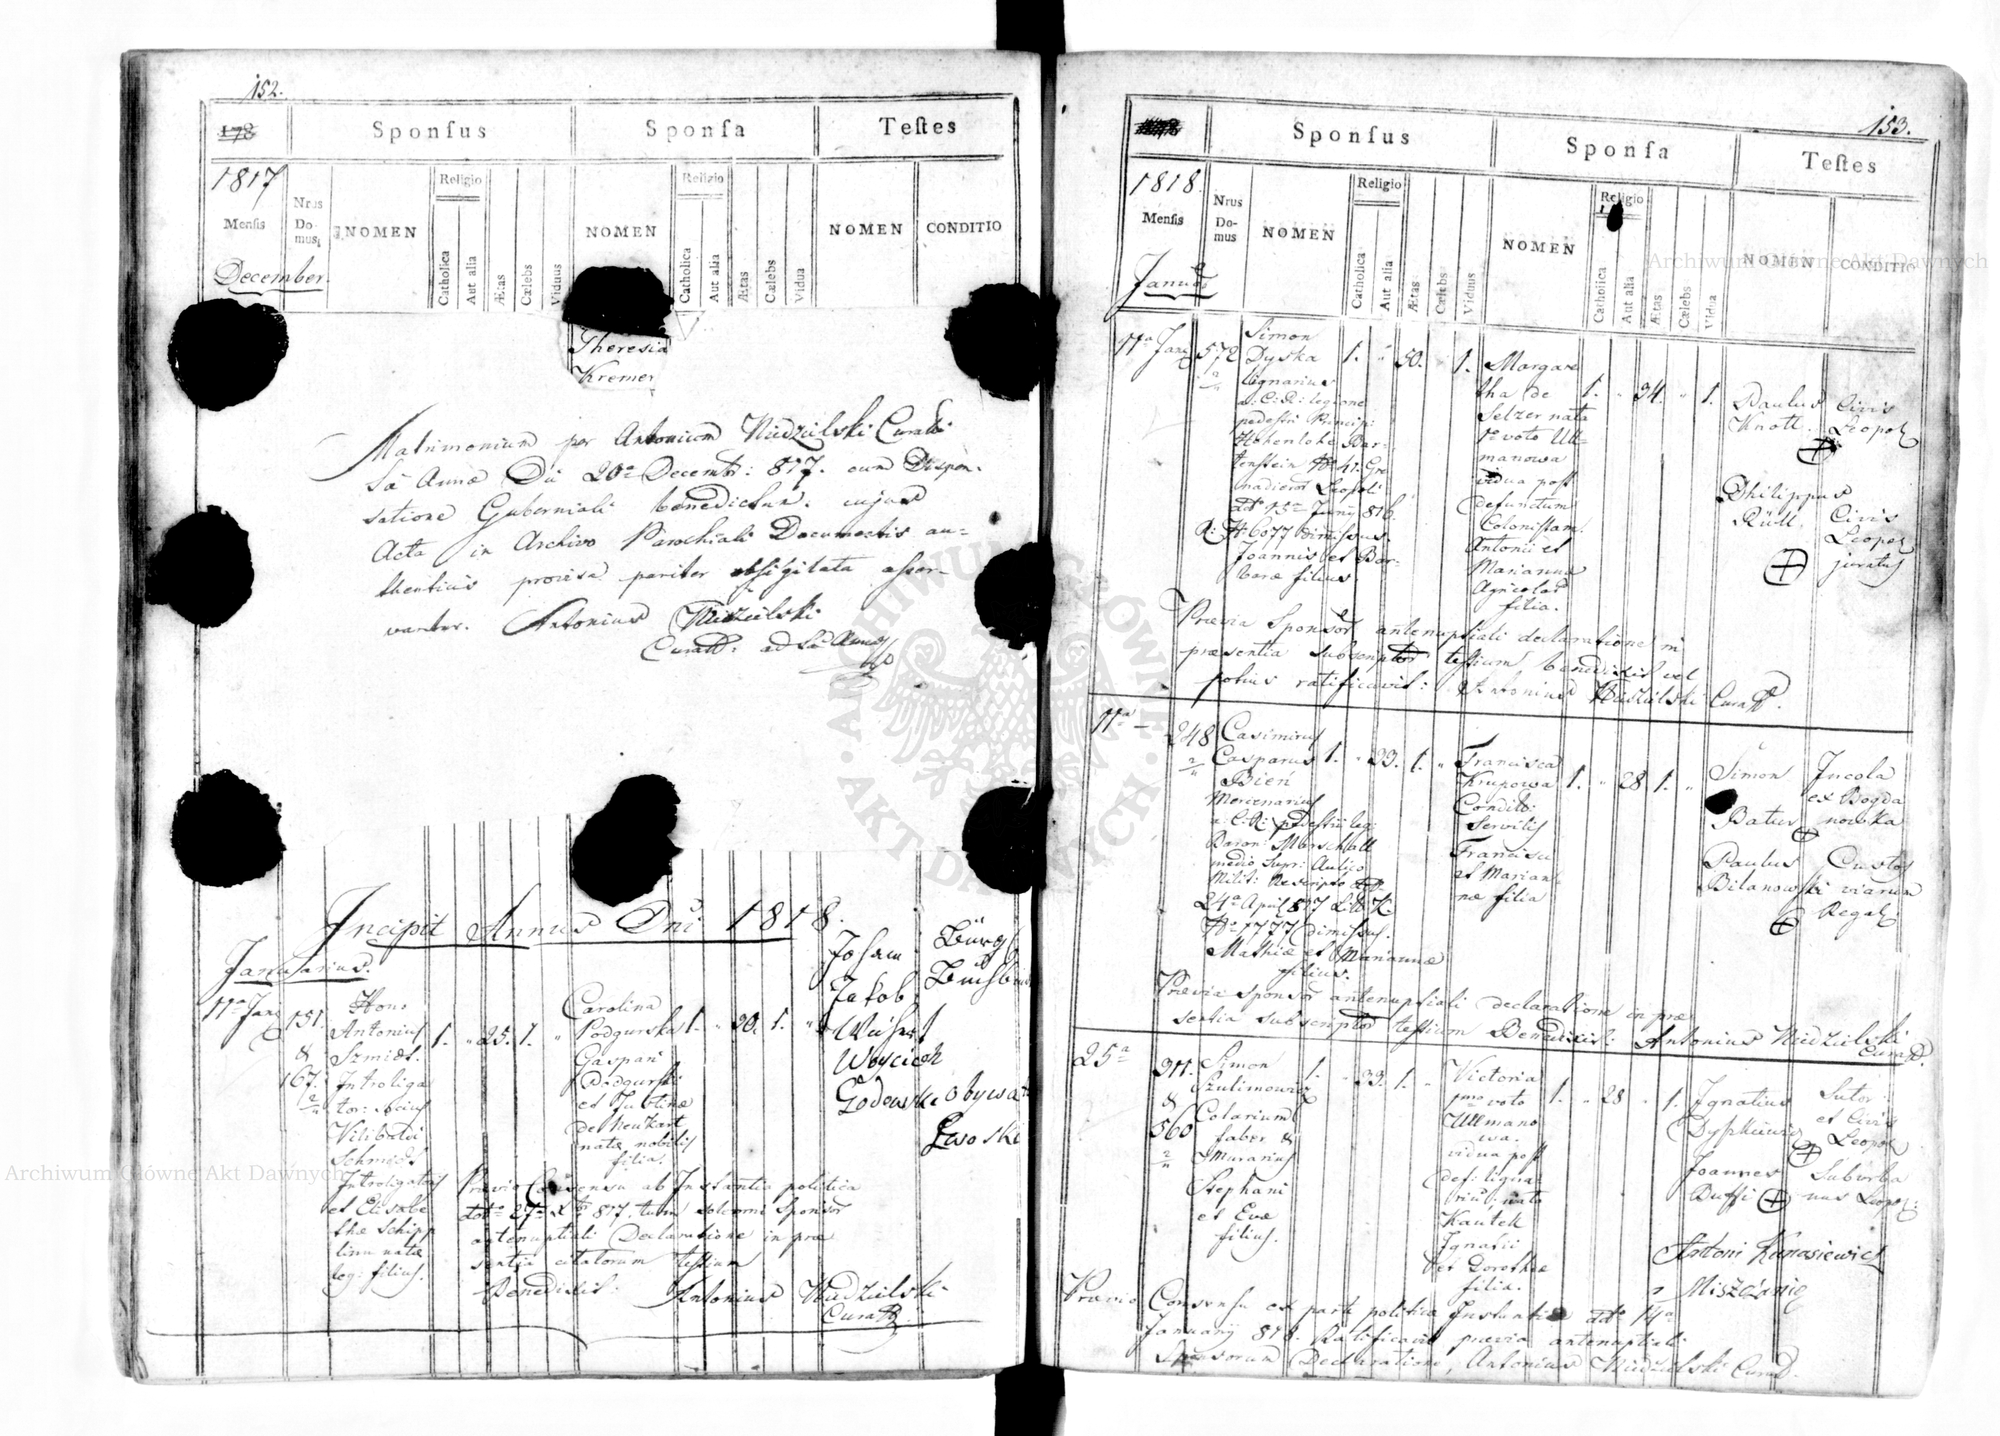 152.
178
Sponsus
Sponsa
Testes
1817
Mensis
Nrus
Do-
mus
NOMEN
Religio
Catholica
Aut alia
Ætas
Cælebs
Viduus
NOMEN
Religio
Catholica
Aut alia
Ætas
Cælebs
Vidua
NOMEN
CONDITIO
December.
Theresia
Kremer
Matrimonium per Antonium Niedzielski Curatt
Sã Annæ Die 20a Decembr: 817. cum Dispen-
satione Guberniali benedictum. cujus
Acta in Archivo Parochiali Documentis au-
thenticis provisa pariter obsigilata asser-
vantur. Antonius Niedzielski
Curatt: ad Sã Annã
Incipit Annus Dni 1818.
Januarius.
11a Janr
151
&
167.
Hono
Antonius
Szmidt.
Introliga
tor: socius
Vilibaldi
Schmidt
Introligatoris
et Elisabe
thæ Schipp
linn natæ
leg: filius.
1. " 25. 1. "
Carolina
Podgurska
Gaspari
Podgurski
et Justinæ
De Neukart
natæ nobilis
filia.
1. " 20. 1. "
Johann Bürg
Jakob Buchbin
Wojciech
Godowski obywa
Lwoski
Prævio Consensu ab Instantia politica
ddto 27a Xbr 817. tum solemni Sponsor
antenuptiali Declaratione in præ
sentia citatorum testium
Benedixit: Antonius Niedzielski
Curatt
153.
Sponsus
Sponsa
Testes
1818.
Mensis
Nrus
Do-
mus
NOMEN
Religio
Catholica
Aut alia
Ætas
Cælebs
Viduus
NOMEN
Religio
Catholica
Aut alia
Ætas
Cælebs
Vidua
NOMEN
CONDITIO
Januar
11a Janr
572
Simon
Dyska
lignarius
a: C: R: legione
pedestri Principi
Hohenlohe Bar-
tenstein No 41. Gre
nadieror Leopoli
ddo 15a Junij 816.
No 6077 dimissus
Joannis et Bar-
baræ filius.
1. " 50. " 1.
Margare
tha de
Selzer nata
1o voto Ull-
manowa
vidua post
defunctum
Colonistam
Antonii et
Marianna
Agricolar
filia.
1. " 34. " 1.
Paulus Civis
Knott. Leopol
Philippus
Rüll. Civis
Leopol
juratus
Prævia Sponsor antenuptiali declaratione in
præsentia subscriptor testium, benedixit vel
potius ratificavit: Antonius Niedzielski Curatt.
11a
248
Casimirus
Casparus
Bień
Mercenarius
a: C: R: pedestri leg:
Baron: Marschall
medio Supr: Aulico
Milit: Rescripto ddo
24a April 817 Lit K.
No 1777 dimissus.
Mathiæ et Mariannæ
filius.
1. " 33. 1. "
Francisca
Krupowa
Condit:
servilis
Francisci
et Marian-
næ filia
1. " 28 1. "
Simon Incola
ex Bogda
Batus nowka
Paulus Custos
Bilanowski viarum
Regal
Prævia sponsor antenuptiali declaratione in præ
sentia subscriptor testium Benedixit: Antonius Niedzielski
Curatt.
25a
311.
&
560
Simon
Szulimowicz
Colarium
faber &
Murarius
Stephani
et Evæ
filius.
1. " 33. 1. "
Victoria
pmo voto
Ullmano
wa.
vidua post
def: ligna-
rium, nata
Kautek
Ignatii
et Dorotheæ
filia.
1. " 28 " 1.
Ignatius Sutor
et Civis
Leopol
Joannes Suburba
Buffi nus Leopol:
Antoni Kanasiewicz
Prævio Consensu ex parte politicæ Instantiæ ddo 14a
Januarij 818. Ratificavit prævia antenuptiali
Sponsorum Declaratione, Antonius Niedzielski Curatt.
Archiwum Główne Akt Dawnych
Archiwum Główne Akt Dawnych
ARCHIWUM GŁÓWNE AKT DAWNYCH